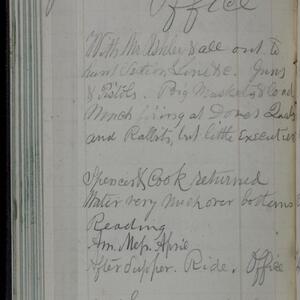 Office
With Mr. Butler & all out to
hunt Section Line &c. Guns
& Pistols. Big Muskets & loads
Much firing at Doves Quails
and Rabbits, but little Execution
Spencer & Cook returned
Water very much over bottoms
Reading
Am. Mess. April
After Supper. Ride. Office